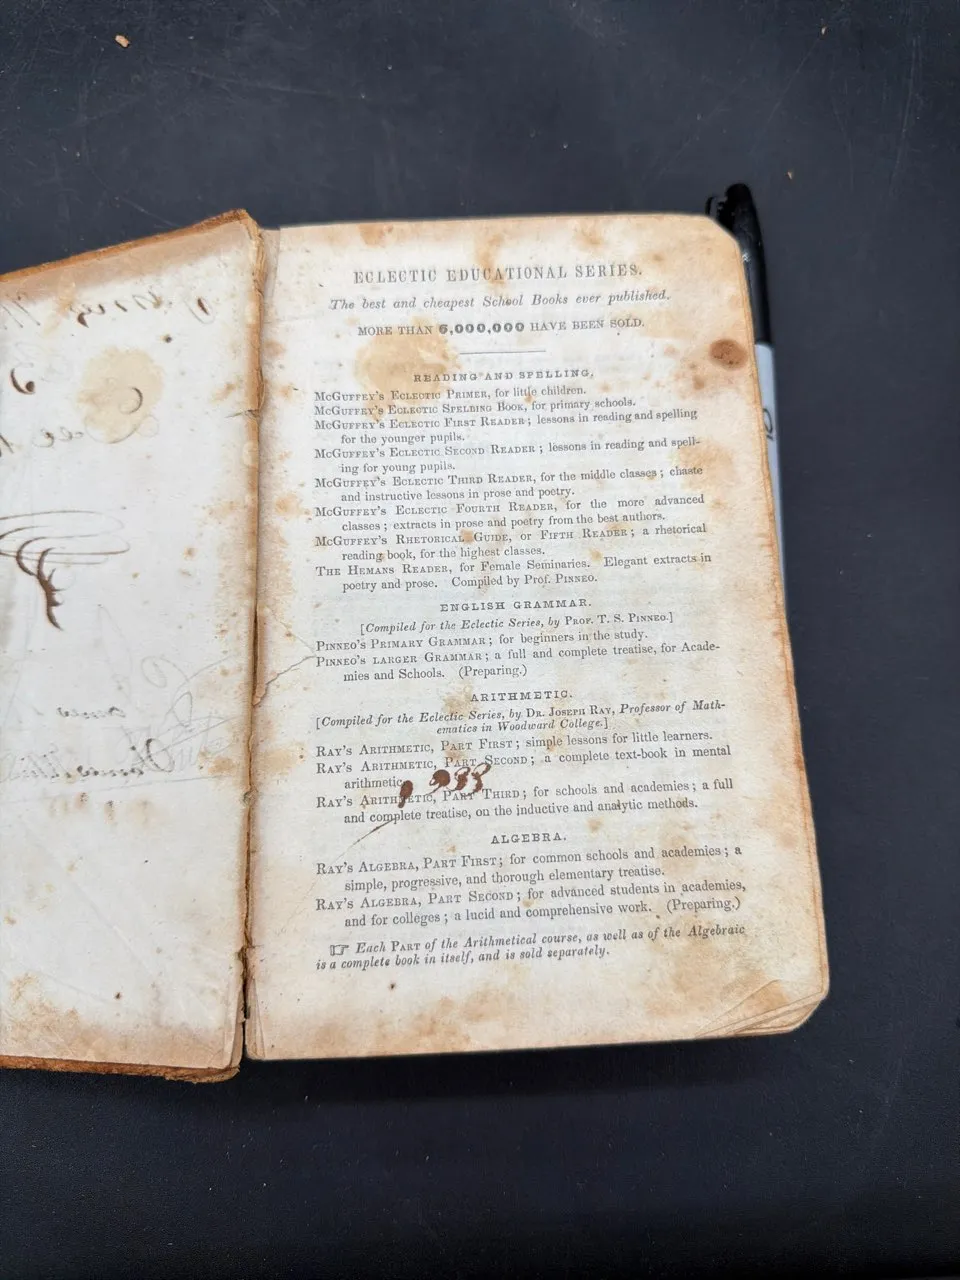 ECLECTIC EDUCATIONAL SERIES.
The best and cheapest School Books ever published.
MORE THAN 6,000,000 HAVE BEEN SOLD.
READING AND SPELLING.
MCGUFFEY'S ECLECTIC PRIMER, for little children.
MCGUFFEY'S ECLECTIC SPELLING BOOK, for primary schools.
MCGUFFEY'S ECLECTIC FIRST READER; lessons in reading and spelling
for the younger pupils.
MCGUFFEY'S ECLECTIC SECOND READER; lessons in reading and spell-
ing for young pupils.
MCGUFFEY'S ECLECTIC THIRD READER, for the middle classes; chaste
and instructive lessons in prose and poetry.
MCGUFFEY'S ECLECTIC FOURTH READER, for the more advanced
classes; extracts in prose and poetry from the best authors.
MCGUFFEY'S RHETORICAL GUIDE, OR FIFTH READER; a rhetorical
reading book, for the highest classes.
THE HEMANS READER, for Female Seminaries. Elegant extracts in
poetry and prose. Compiled by Prof. PINNEO.
ENGLISH GRAMMAR.
[Compiled for the Eclectic Series, by PROF. T. S. PINNEO.]
PINNEO'S PRIMARY GRAMMAR; for beginners in the study.
PINNEO'S LARGER GRAMMAR; a full and complete treatise, for Acade-
mies and Schools. (Preparing.)
ARITHMETIC.
[Compiled for the Eclectic Series, by DR. JOSEPH RAY, Professor of Math-
ematics in Woodward College.]
RAY'S ARITHMETIC, PART FIRST; simple lessons for little learners.
RAY'S ARITHMETIC, PART SECOND; a complete text-book in mental
arithmetic
RAY'S ARITHMETIC, PART THIRD; for schools and academies; a full
and complete treatise, on the inductive and analytic methods.
ALGEBRA.
RAY'S ALGEBRA, PART FIRST; for common schools and academies; a
simple, progressive, and thorough elementary treatise.
RAY'S ALGEBRA, PART SECOND; for advanced students in academies,
and for colleges; a lucid and comprehensive work. (Preparing.)
☞ Each PART of the Arithmetical course, as well as of the Algebraic
is a complete book in itself, and is sold separately.